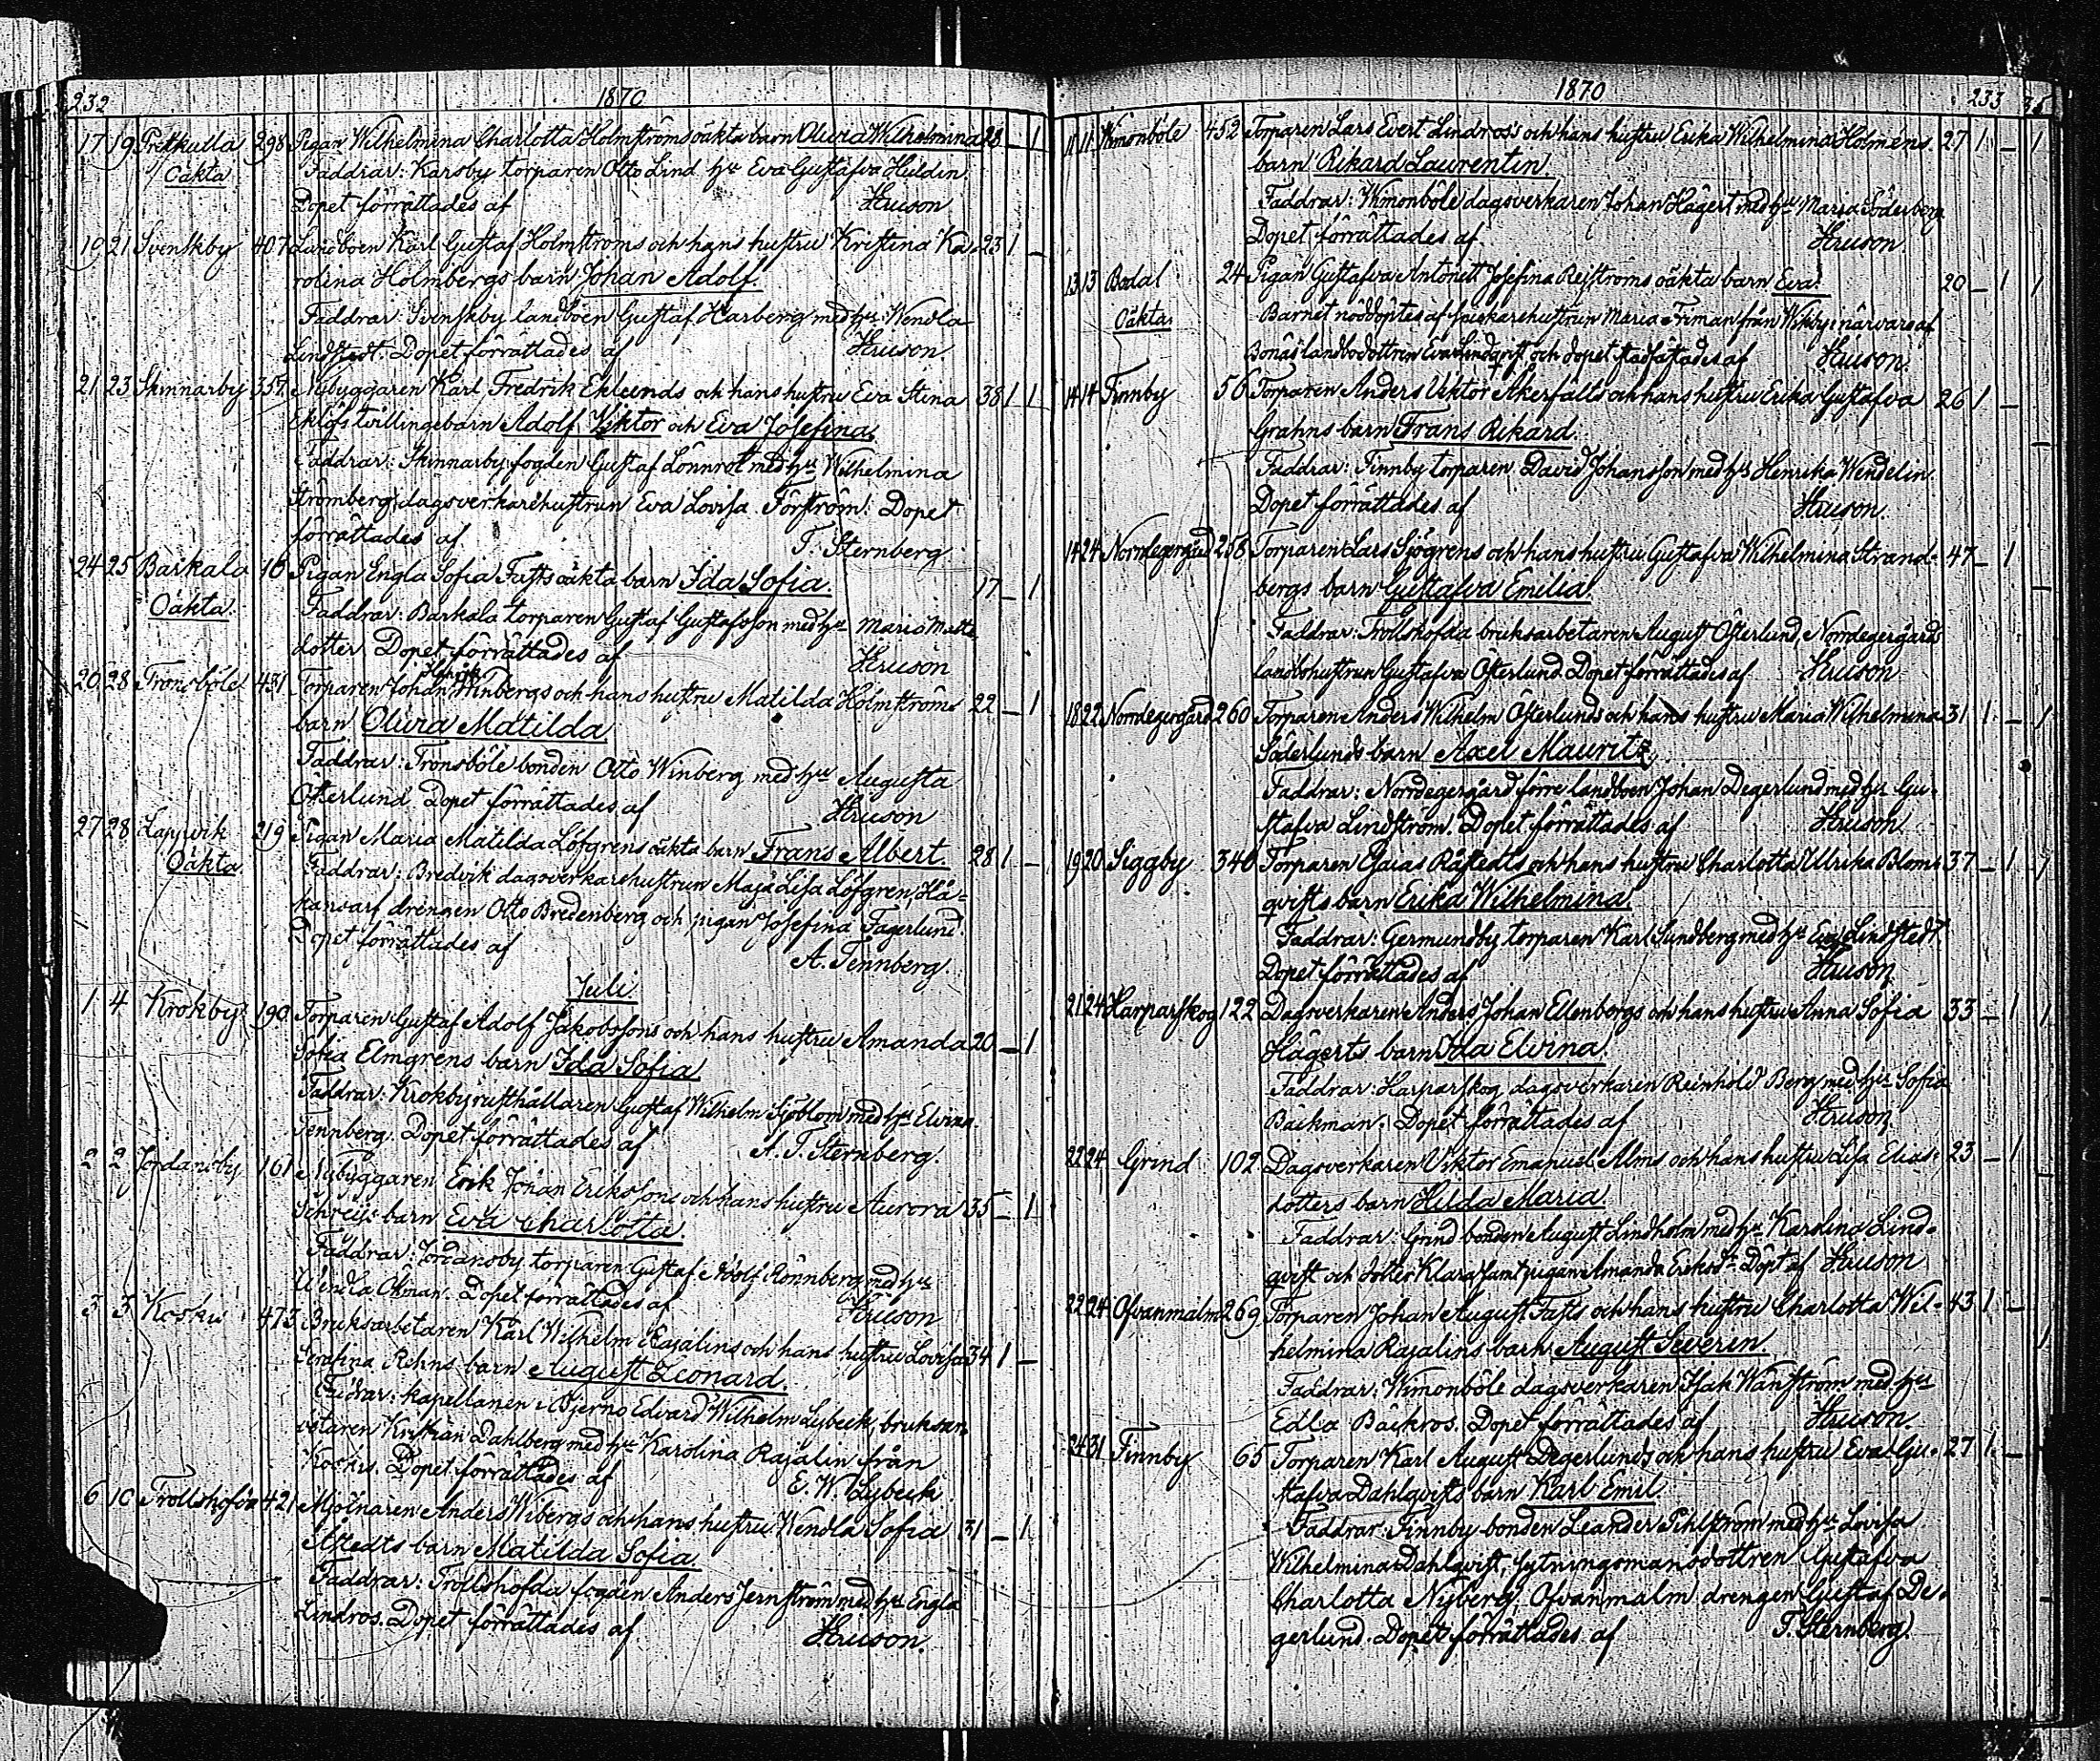 232
1870
17 19 Prestkulla 298 Pigan Wilhelmina Charlotta Holmströms oäkta barn Olivia Wilhelmina 28 _ 1
Oäkta Faddrar: Karsby torparen Otto Lind hu Eva Gustafva Huldin
Dopet förrättades af Hruson
19 21 Svenskby 407 Landboen Karl Gustaf Holmströms och hans hustru Kristina Ka- 23 1 _
rolina Holmbergs barn Johan Adolf.
Faddrar: Svenskby landboen Gustaf Harberg med hu Wendla
Lindstedt. Dopet förrättades af Hruson
21 23 Skinnarby 357 Nybyggaren Karl Fredrik Eklunds och hans hustru Eva Stina 38 1 1
Eklöfs tvillingebarn Adolf Viktor och Eva Josefina.
Faddrar: Skinnarby fogden Gustaf Lönnrot med hu Wilhelmina
Strömberg, dagsverkarehustrun Eva Lovisa Forström. Dopet
förrättades af T. Sternberg
24 25 Baskala 16 Pigan Engla Sofia Fasts oäkta barn Ida Sofia. 17 _ 1
Oäkta Faddrar: Barkala torparen Gustaf Gustafsson med hu Maria Matts
dotter Dopet förrättades af Hruson
26 28 Tronsböle 431 Torparen Johan Henrik Winbergs och hans hustru Matilda Holmströms 22 _ 1
barn Olivia Matilda
Faddrar: Tronsböle bonden Otto Winberg med hu Augusta
Österlund Dopet förrättades af Hruson
27 28 Lappvik 219 Pigan Maria Matilda Löfgrens oäkta barn Frans Albert. 28 1 _
Oäkta Faddrar: Bredvik dagsverkarehustrun Maja Lisa Löfgren, Hå-
kansarf drengen Otto Bredenberg och pigan Josefina Fagerlund.
Dopet förrättades af A. Tennberg.
Juli
1 4 Krokby 190 Torparen Gustaf Adolf Jakobssons och hans hustru Amanda 20 _ 1
Sofia Elmgrens barn Ida Sofia
Faddrar: Krokby rusthållaren Gustaf Wilhelm Sjöblom med hu Elvina
Tennberg. Dopet förrättades af A. T. Sternberg.
2 2 Jordansby 161 Nybyggaren Erik Johan Erikssons och hans hustru Aurora 35 _ 1
barn Eva Charlotta.
Faddrar: Jordansby torparen Gustaf Adolf Rönnberg med hu
Wendla Öhman. Dopet förrättades af Hruson
3 3 Koskis 473 Bruksarbetaren Karl Wilhelm Rajalins och hans hustru Lovisa 34 1 _
Serafina Rehns barn August Leonard.
Faddrar: kapellanen i Bjerno Edvard Wilhelm Lybeck, bruksar-
betaren Kristian Dahlberg med hu Karolina Rajalin från
Koskis. Dopet förrättades af E. W. Lybeck
6 10 Trollshofda 421 Mjölnaren Anders Wibergs och hans hustru Wendla Sofia 31 _ 1
Åstedts barn Matilda Sofia.
Faddrar: Trollshofda fogden Anders Jernström med hu Engla
Lindros. Dopet förrättades af Hruson.
1870
233
11 11 Wimonböle 452 Torparen Lars Evert Lindros's och hans hustru Erika Wilhelmina Holmens 27 1 _
barn Rikard Laurentin.
Faddrar: Wimonböle dagsverkaren Johan Hägert med hu Maria Söderberg
Dopet förrättades af Hruson
13 13 Bodal 24 Pigan Gustafva Antonett Josefina Rejströms oäkta barn Eva. 20 _ 1
Oäkta Barnet nöddöptes af fiskarehustrun Maria Friman från Wikby i närvaro af
Bonäs landbodottren Eva Lindqvist och dopet stadfästades af Hruson.
14 14 Finnby 56 Torparen Anders Viktor Åkerfälts och hans hustru Erika Gustafva 26 1 _
Grahns barn Frans Rikard.
Faddrar: Finnby torparen David Johansson med hu Henrika Wendelin.
Dopet förrättades af Hruson.
14 24 Norrdegergård 258 Torparen Lars Sjögrens och hans hustru Gustafva Wilhelmina Strand- 47 _ 1
bergs barn Gustafva Emilia.
Faddrar: Trollshofda bruksarbetaren August Österlund, Norrdegergårds
landbohustrun Gustafva Österlund. Dopet förrättades af Hruson
18 22 Norrdegergård 260 Torparen Anders Wilhelm Österlunds och hans hustru Maria Wilhelmina 31 1 _
Söderlunds barn Axel Mauritz.
Faddrar: Norrdegergård förre landboen Johan Degerlund med hu Gu-
stafva Lindström. Dopet förrättades af Hruson
19 20 Siggby 340 Torparen Esaias Råstedts och hans hustru Charlotta Ulrika Blom- 37 _ 1
qvists barn Erika Wilhelmina.
Faddrar: Germundby torparen Karl Sundberg med hu Eva Lindstedt.
Dopet förrättades af Hruson
21 24 Harparskog 122 Dagsverkaren Anders Johan Ellenborgs och hans hustru Anna Sofia 33 _ 1
Hägerts barn Ida Elvina
Faddrar: Harparskog dagsverkaren Reinhold Berg med hu Sofia
Bäckman. Dopet förrättades af Hruson
22 24 Grind 102 Dagsverkaren Viktor Emanuel Alms och hans hustru Lisa Elias- 23 _ 1
dotters barn Hilda Maria
Faddrar: Grind bonden August Lindholm med hu Karolina Lind-
qvist och dotter Klara samt pigan Amanda Eriksdr Döpt af Hruson
22 24 Ofvanmalm 269 Torparen Johan August Fasts och hans hustru Charlotta Wil- 43 1 _
helmina Rajalins barn August Severin.
Faddrar: Wimonböle dagsverkaren Isak Wanström med hu
Edla Bäckros. Dopet förrättades af Hruson
24 31 Finnby 65 Torparen Karl August Degerlunds och hans hustru Eva Gu- 27 1 _
stafva Dahlqvists barn Karl Emil
Faddrar: Finnby bonden Leander Pihlström med hu Lovisa
Wilhelmina Dahlqvist, sytningsmansdottren Gustafva
Charlotta Nyberg, Ofvanmalm drengen Gustaf De-
gerlund. Dopet förrättades af T. Sternberg.